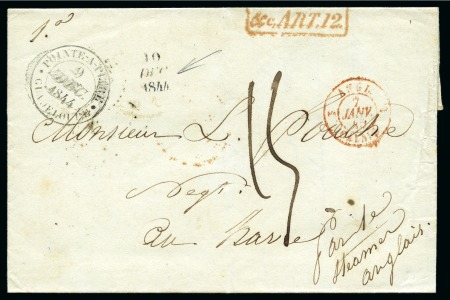 Acc. ART. 12.
1.a
POINTE-A-PITRE
9
DEC
1844
GUADELOUPE
10
DEC
1844
ANGL.
7
JANV
Monsieur L. Pouche
15
Negt.
au havre
par le
steamer
anglais.